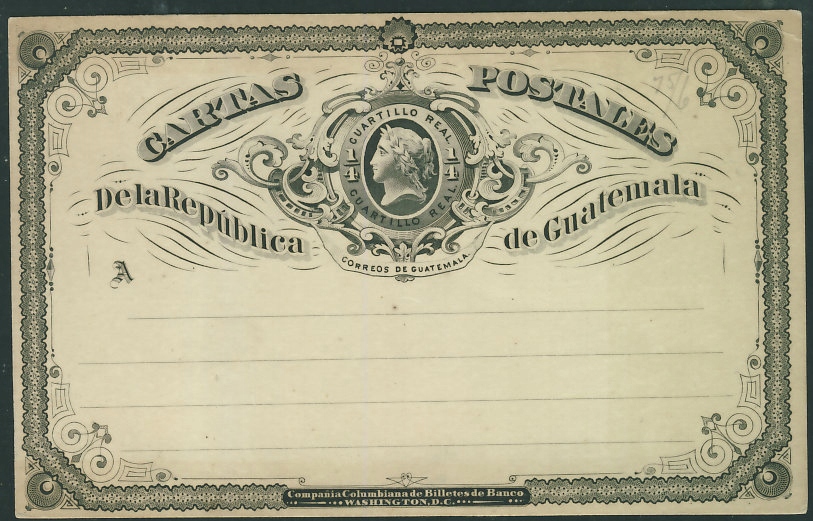 CARTAS POSTALES
CUARTILLO REAL
1/4 1/4
CUARTILLO REAL
De la República de Guatemala
CORREOS DE GUATEMALA.
A
Compañia Columbiana de Billetes de Banco
WASHINGTON, D.C.